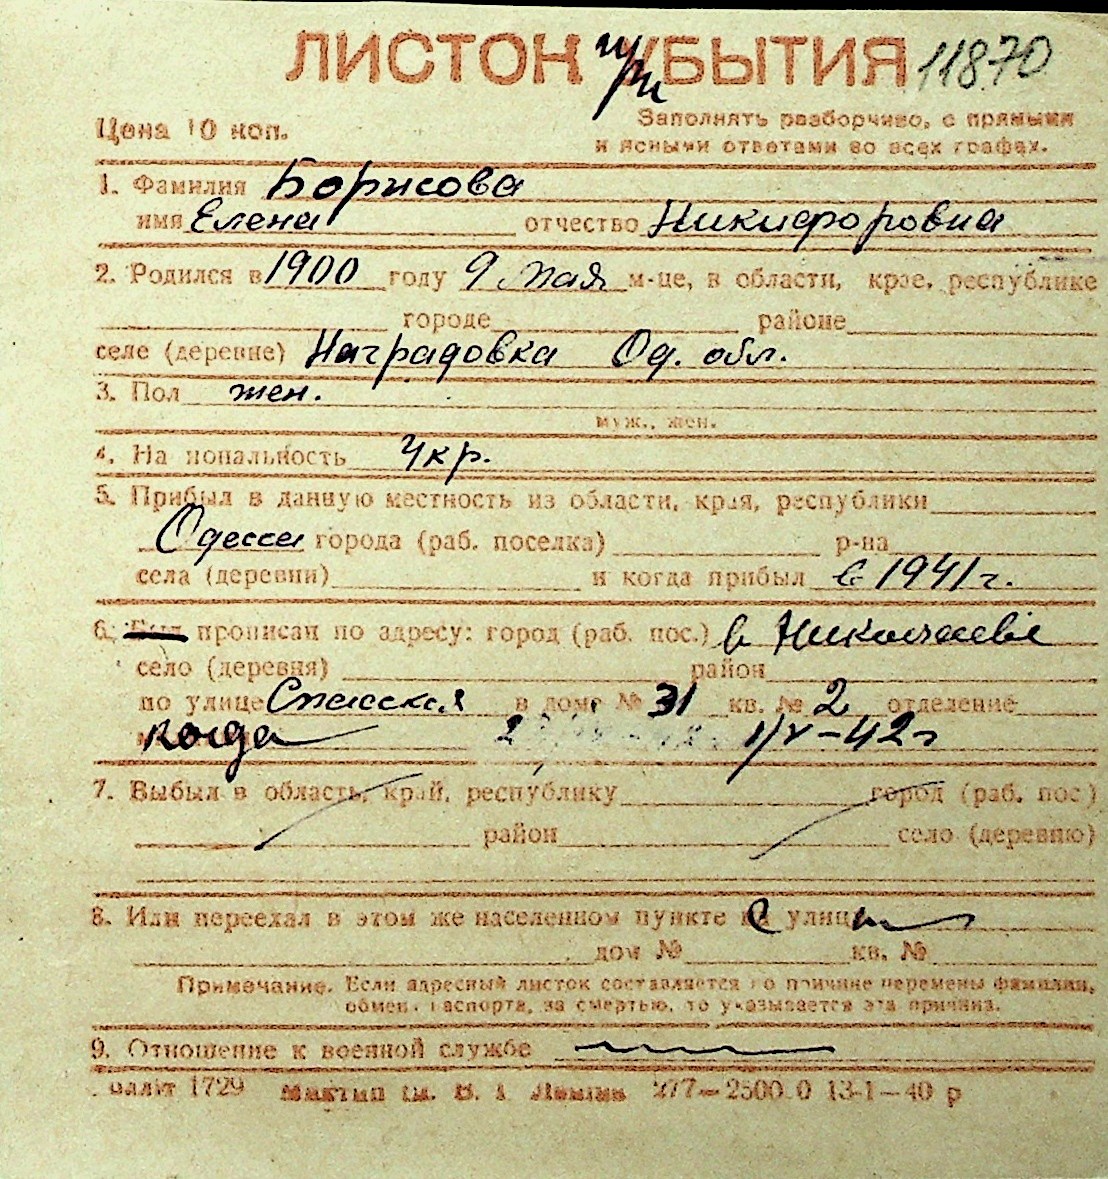 ЛИСТОК при УБЫТИЯ 11870
Цена 10 коп.
Заполнять разборчиво, с прямыми
и ясными ответами во всех графах.
1. Фамилия Борисова
имя Елена отчество Никифоровна
2. Родился в 1900 году 9 мая м-це, в области, крае, республике
городе районе
селе (деревне) Наградовка Од. обл.
3. Пол жен.
муж., жен.
4. На иональность Укр.
5. Прибыл в данную местность из области, края, республики
Одессы города (раб. поселка) р-на
села (деревни) и когда прибыл в 1941 г.
6. Был прописан по адресу: город (раб. пос.) в Николаеве
село (деревня) район
по улице Спасская в доме № 31 кв. № 2 отделение
когда 1/V-42 г
7. Выбыл в область, край, республику город (раб. пос.)
район село (деревню)
8. Или переехал в этом же населенном пункте с улицы
дом № кв. №
Примечание. Если адресный листок составляется по причине перемены фамилии,
обмен. паспорта, за смертью, то указывается эта причина.
9. Отношение к военной службе
1729 277—2500.0 13-1—40 р